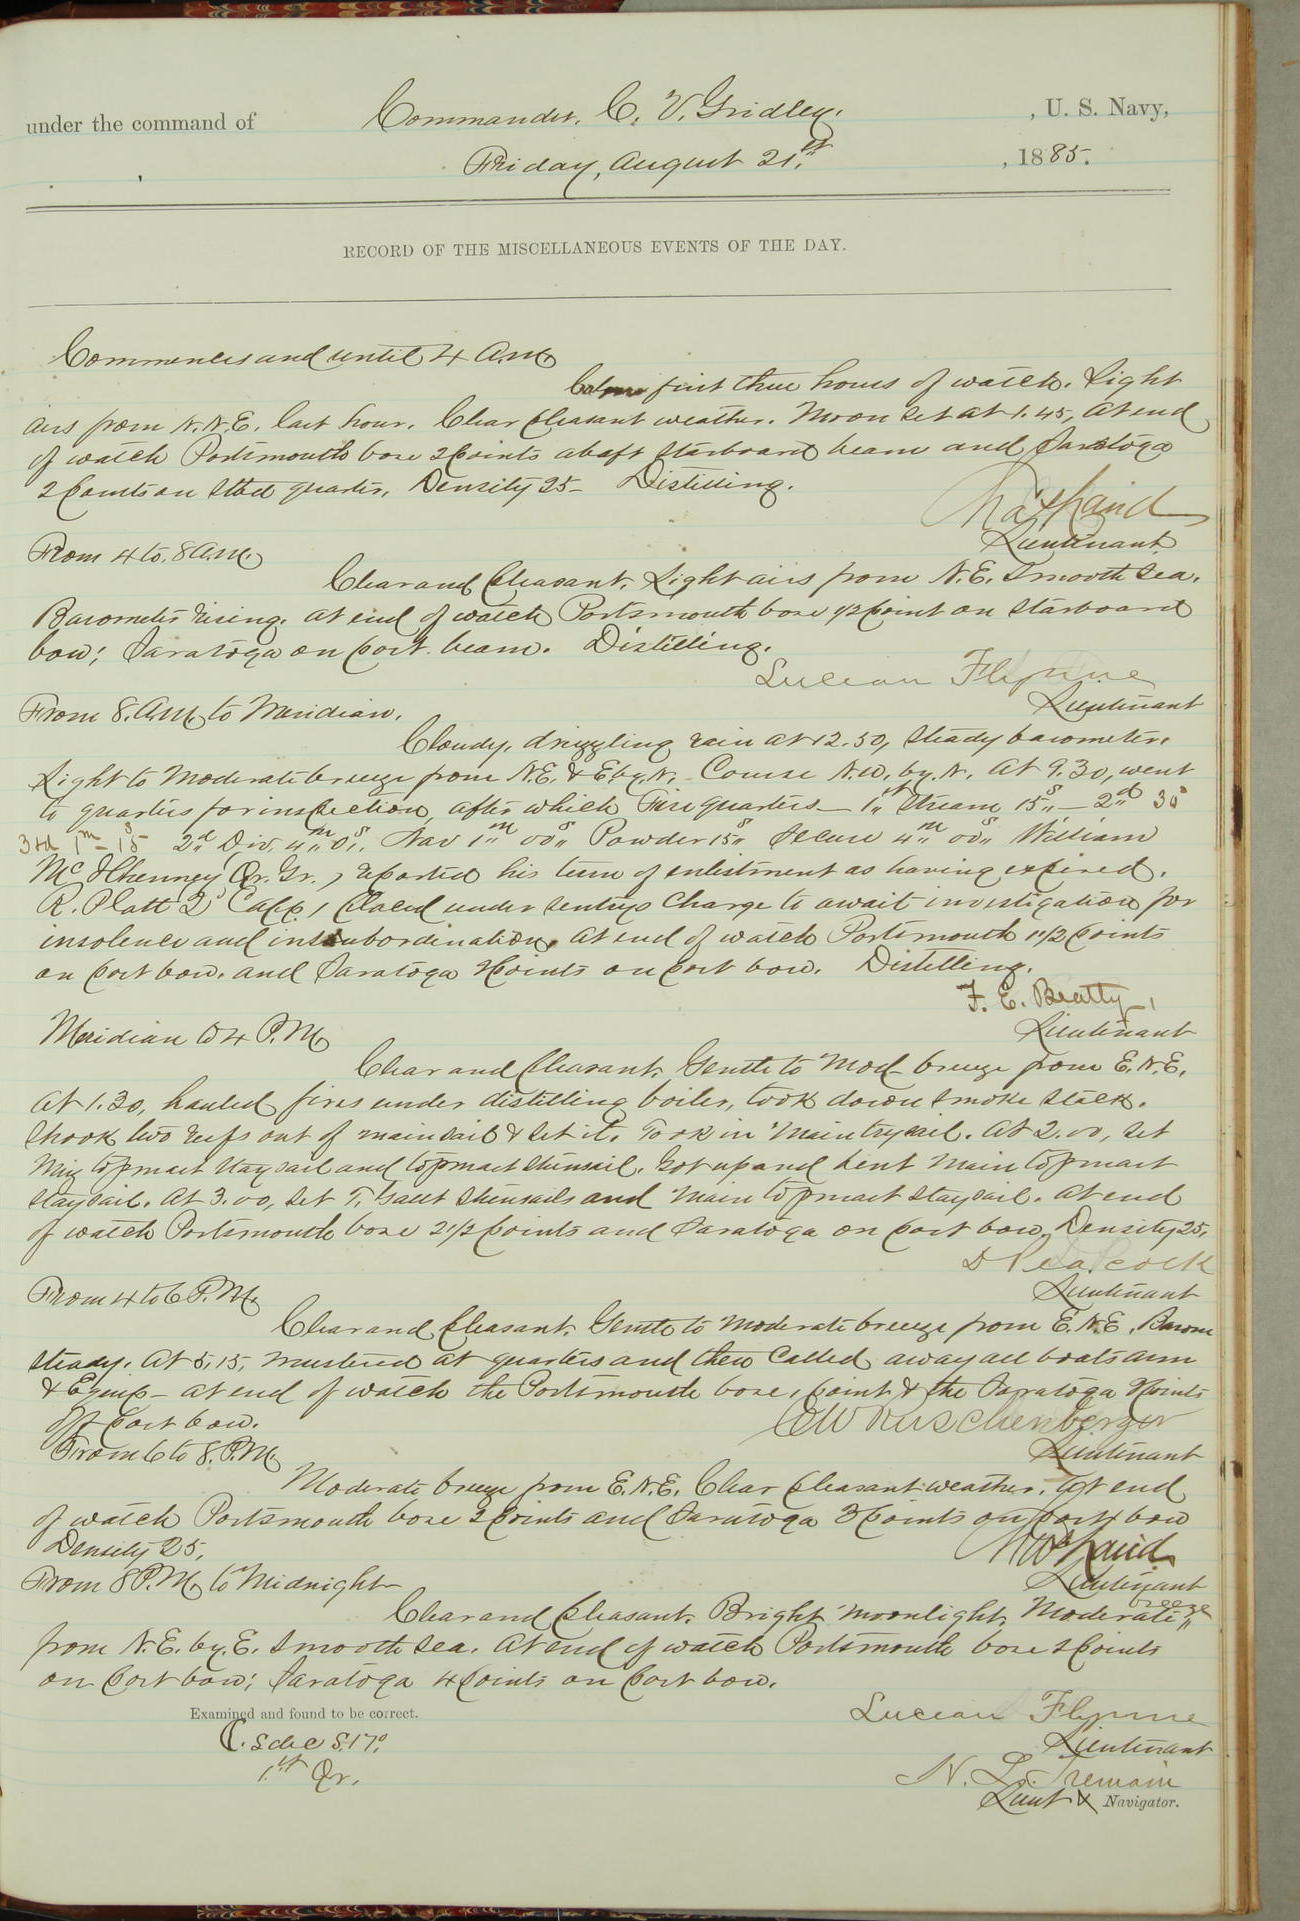 under the command of Commander, C. V. Gridley. , U. S. Navy,
Friday, August 21st , 1885.
RECORD OF THE MISCELLANEOUS EVENTS OF THE DAY.
Commences and until 4 A.M.
Calm first three hours of watch. Light
airs from N.N.E. last hour. Clear pleasant weather. Moon set at 1.45, At end
of watch Portsmouth bore 2 points abaft starboard beam and Saratoga
2 points on Stbd quarter. Density 25 - Distilling.
Lieutenant.
From 4 to 8 A.M.
Clear and Pleasant. Light airs from N.E. Smooth Sea.
Barometer rising. At end of watch Portsmouth bore 1/2 point on Starboard
bow; Saratoga on port beam. Distilling.
Lucian Flynne
Lieutenant
From 8. A.M. to Meridian.
Cloudy, drizzling rain at 12.50, Steady barometer.
Light to Moderate breeze from N.E. & E. by. N. Course N.W. by. N. At 9.30, went
to quarters for inspection, after which Fire quarters - 1st Stream 15s - 2d 30s
3rd 1m - 15s 2d Div. 4m 0s. Nav 1m 00s Powder 15s Secure 4m 00s William
McIlhenney Qr. Gr., reported his term of enlistment as having expired.
R. Platt placed under sentrys charge to await investigation for
insolence and insubordination. At end of watch Portsmouth 1 1/2 points
on port bow. and Saratoga points on port bow. Distilling.
F. E. Beatty,
Lieutenant
Meridian to 4 P.M.
Clear and Pleasant. Gentle to Mod breeze from E.N.E.
At 1.30, hauled fires under distilling boiler, took down smoke stack.
Shook two reefs out of mainsail & set it. Took in Main trysail. At 2.00, set
Miz topmast staysail and topmast stunsail. Got up and bent Main topmast
staysail. At 3.00, set T. Gallt Stunsails and Main topmast staysail. At end
of watch Portsmouth bore 2 1/2 points and Saratoga on port bow. Density 25.
D Peacock
Lieutenant
From 4 to 6 P.M.
Clear and Pleasant. Gentle to Moderate breeze from E.N.E. Barom
steady. At 5.15, mustered at quarters and then called away all boats arm
& Equip - at end of watch the Portsmouth bore 1 point & the Saratoga points
off port bow.
C W Ruschenberger
Lieutenant
From 6 to 8. P.M.
Moderate breeze from E.N.E. Clear pleasant weather. At end
of watch Portsmouth bore 2 points and Saratoga 3 points on port bow
Density 25.
Lieutenant
From 8 P.M. to Midnight
Clear and Pleasant. Bright moonlight. Moderate breeze
from N.E. by. E. Smooth sea. At end of watch Portsmouth bore 2 points
on port bow; Saratoga 4 points on port bow.
Examined and found to be correct.
Lucian Flynne
Lieutenant
1st Qr.
N. L. Tremain
Lieut & Navigator.